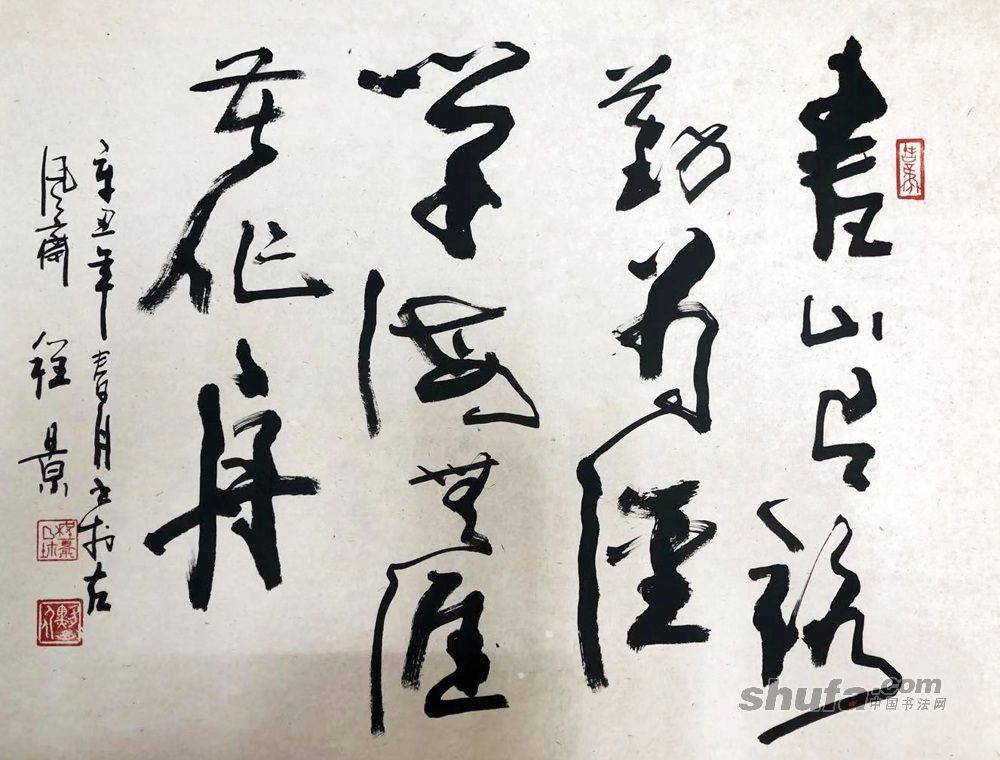 書山有路
勤為徑
學海無涯
苦作舟
辛丑年春月书於古
风齋 程景
shufa.com
中国书法网